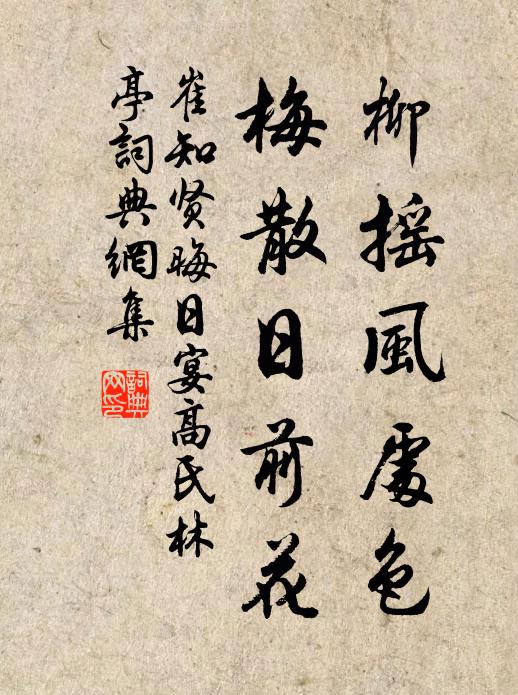 柳摇風處色
梅散日前花
崔知贤晦日宴高氏林
亭詞典網集
詞典
网印